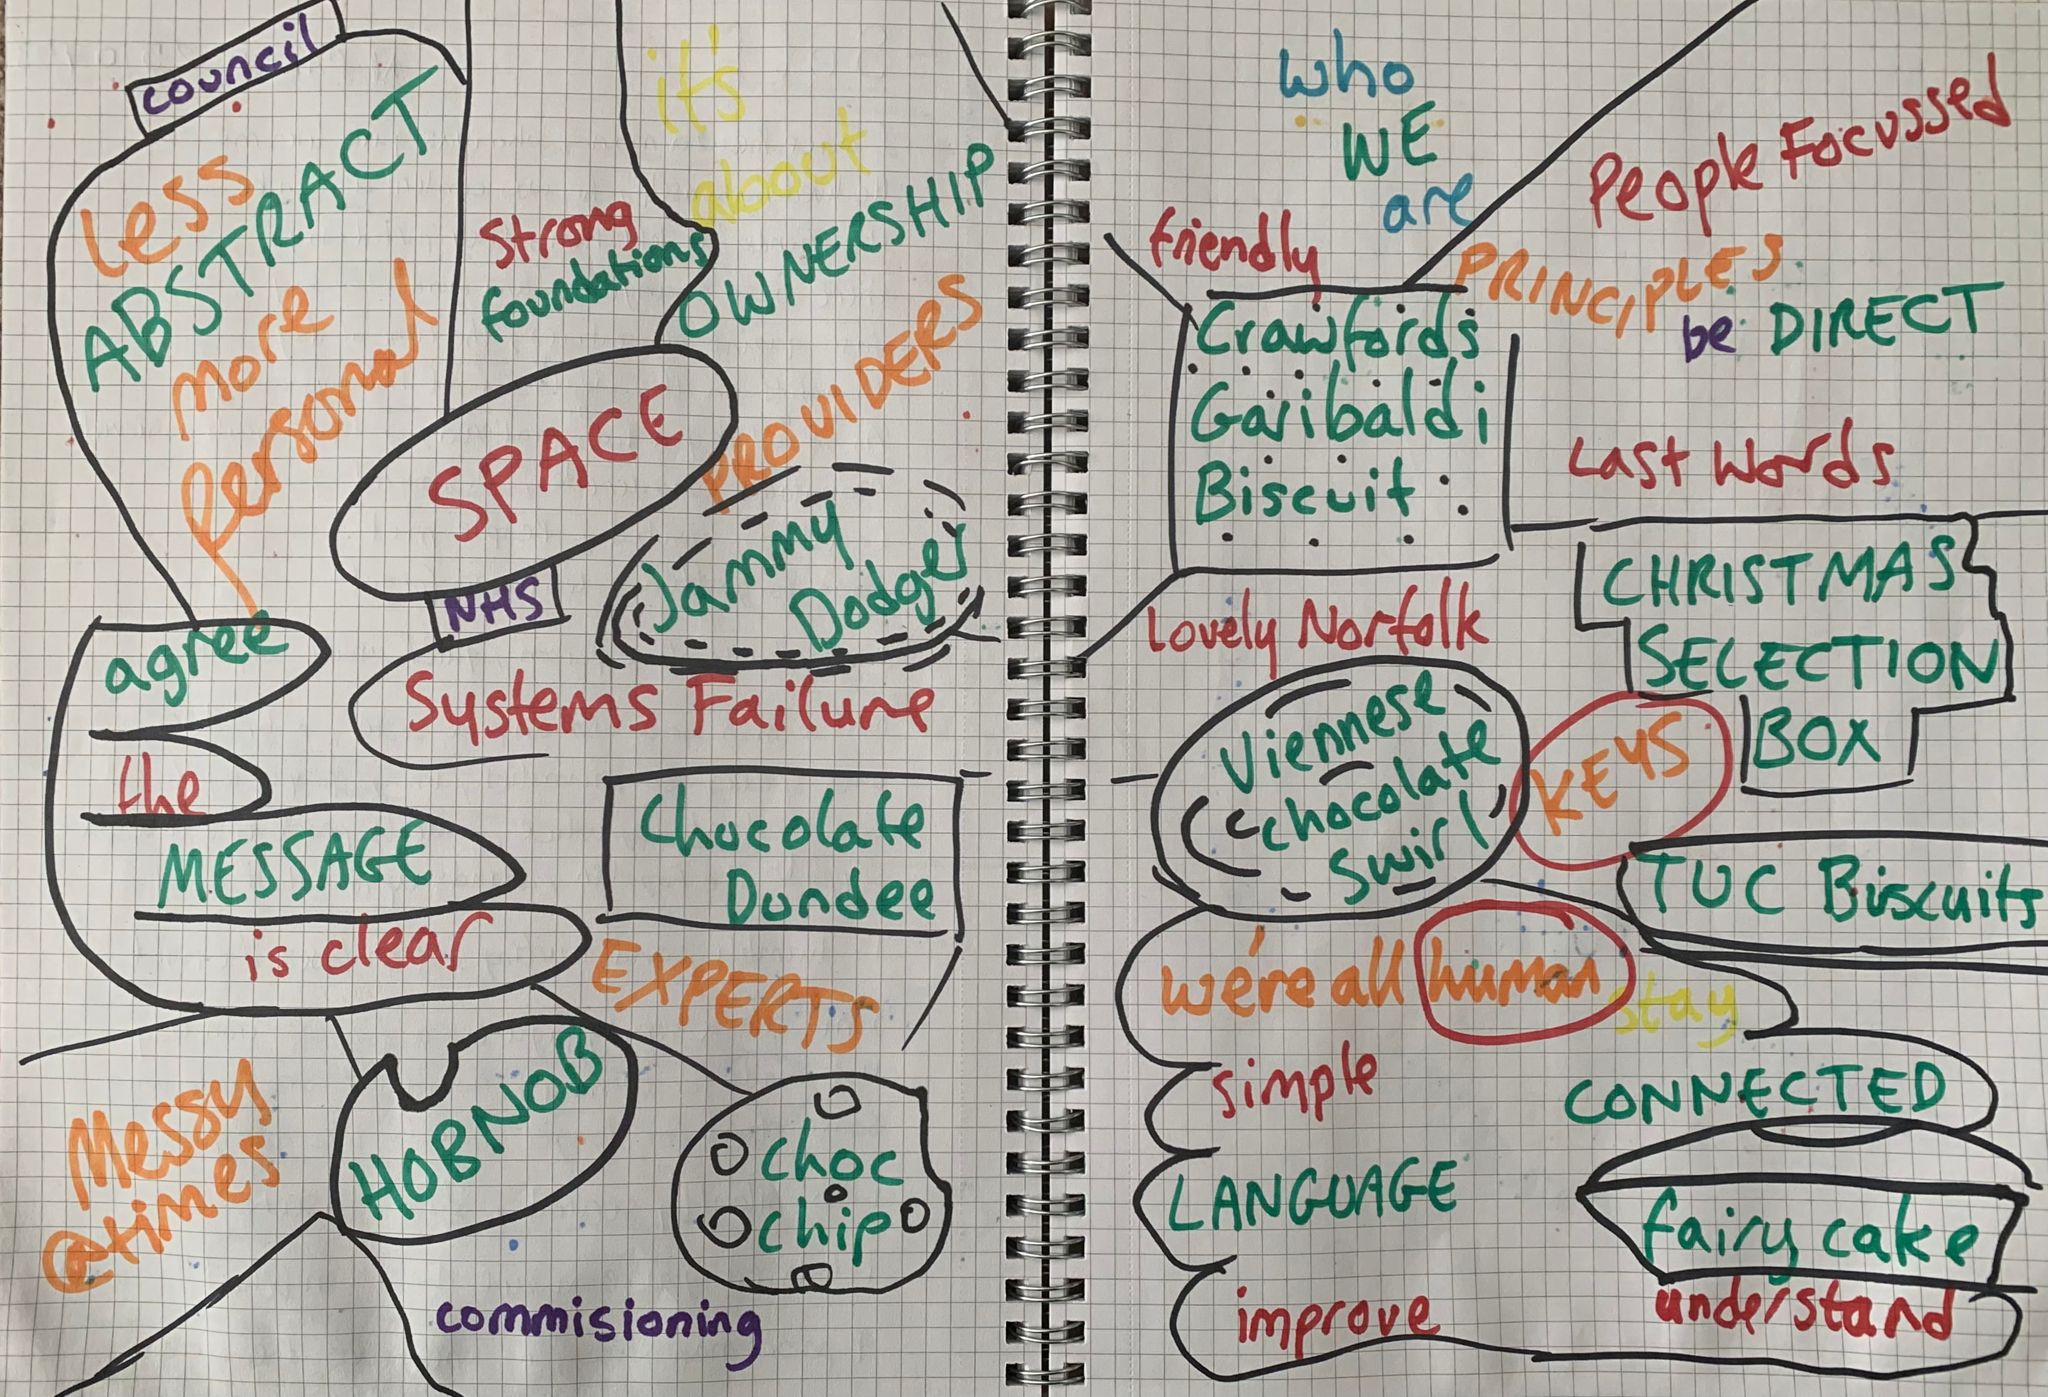 council
Less
ABSTRACT
more
Personal
Strong
foundations
it's
about
OWNERSHIP
SPACE
PROVIDERS
NHS
Jammy
Dodger
agree
the
MESSAGE
is clear
Systems Failure
Chocolate
Dundee
EXPERTS
Messy
@times
HOBNOB
choc
chip
commisioning
who
WE
are
friendly
Crawfords
Garibaldi
Biscuit
People Focussed
PRINCIPLES
be DIRECT
Last Words
Lovely Norfolk
CHRISTMAS
SELECTION
BOX
Viennese
chocolate
swirl
KEYS
TUC Biscuits
we're all human
stay
simple
CONNECTED
LANGUAGE
fairy cake
improve
understand